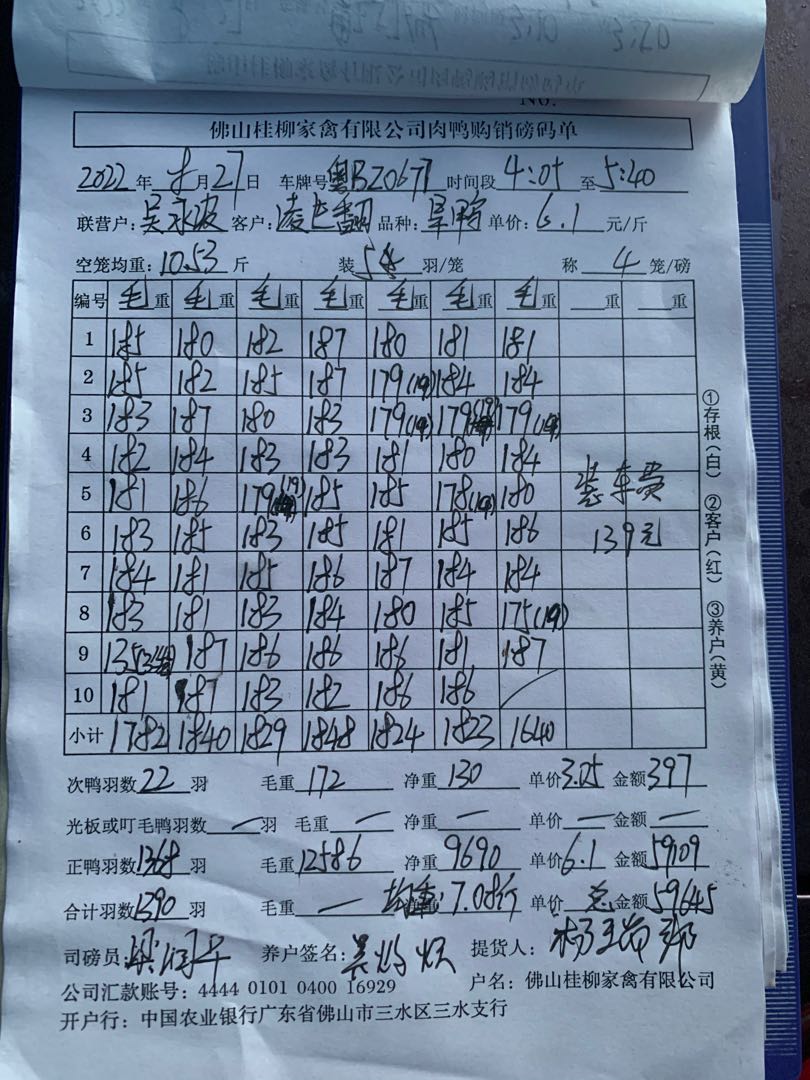 No.
佛山桂柳家禽有限公司肉鸭购销磅码单
2022年8月27日 车牌号粤BZ0677 时间段4:05至5:40
联营户:吴永波 客户: 品种:旱鸭 单价:6.1元/斤
空笼均重:10.53斤 装5羽/笼 称4笼/磅
编号 毛重 毛重 毛重 毛重 毛重 毛重 毛重 重 重
1 185 180 182 187 180 181 181
2 185 182 185 187 179(19) 184 184
3 183 187 180 183 179(19) 179(19) 179(19)
4 182 184 183 183 181 180 184
5 181 186 179(19) 185 185 178(19) 180 装车费
6 183 185 183 185 181 185 186 139元
7 184 181 185 186 187 184 184
8 183 181 183 184 180 185 175(19)
9 135 187 186 186 186 181 187
10 181 187 183 182 186 186
小计 1782 1840 1829 1848 1824 1823 1640
次鸭羽数22羽 毛重172 净重130 单价3.05 金额397
光板或叮毛鸭羽数—羽 毛重— 净重— 单价— 金额—
正鸭羽数1368羽 毛重12586 净重9690 单价6.1 金额59109
合计羽数1390羽 毛重— 均重:7.08斤 单价 总金额59645
司磅员: 养户签名: 提货人:
公司汇款账号:4444 0101 0400 16929 户名:佛山桂柳家禽有限公司
开户行:中国农业银行广东省佛山市三水区三水支行
①存根(白) ②客户(红) ③养户(黄)